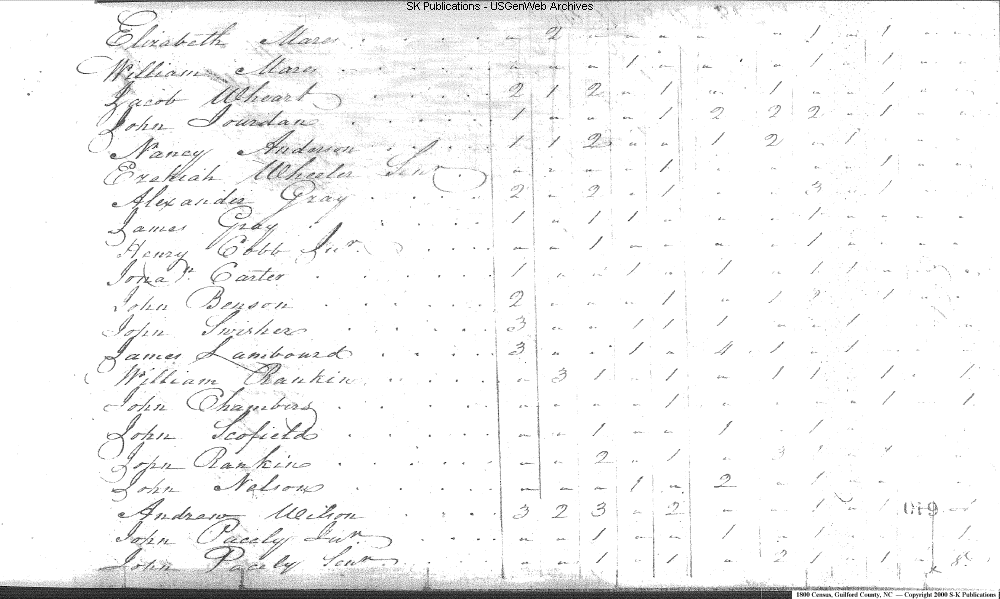 SK Publications - USGenWeb Archives
Elizabeth Mares - 2 - - - - - 1 - 1 - -
William Mares - - - 1 - - - 1 - - - -
Jacob Wheart 2 1 2 - 1 - 1 - - 1 - -
John Jourdan 1 - - - 1 2 2 2 - 1 - -
Nancy Anderson 1 1 2 - - 1 2 - 1 - - -
Ezekiah Wheeler Senr - - - - 1 - - - - 1 - -
Alexander Gray 2 - 2 - 1 - - 3 - 1 - -
James Gray 1 - 1 1 - - - 1 - - - -
Henry Cobb Jur - - 1 - - - - 1 - - - -
Jonan Carter 1 - - 1 - 1 - 1 1 - - -
John Benson 2 - - - 1 - 1 - 1 - -
John Swisher 3 - - 1 1 1 - - 1 - - -
James Lambourd 3 - - 1 - 4 1 - 1 - - -
William Rankin - 3 1 - 1 - 1 1 - 1 - 1
John Chambers - - - - 1 - - - - 1 - 1
John Scofield - - 1 - - 1 - 1 - - -
John Rankin - - 2 - 1 - 3 1 - 1 - -
John Nelson - - - 1 - 2 - 1 - - - -
Andrew Wilson 3 2 3 - 2 - - 1 - 1 - 1
John Pacely Jur - - 1 - - 1 - 1 - - - 1
John Pacely Senr - - 1 - 1 - 2 1 - 1 - 8
019
1800 Census, Guilford County, NC — Copyright 2000 S-K Publications